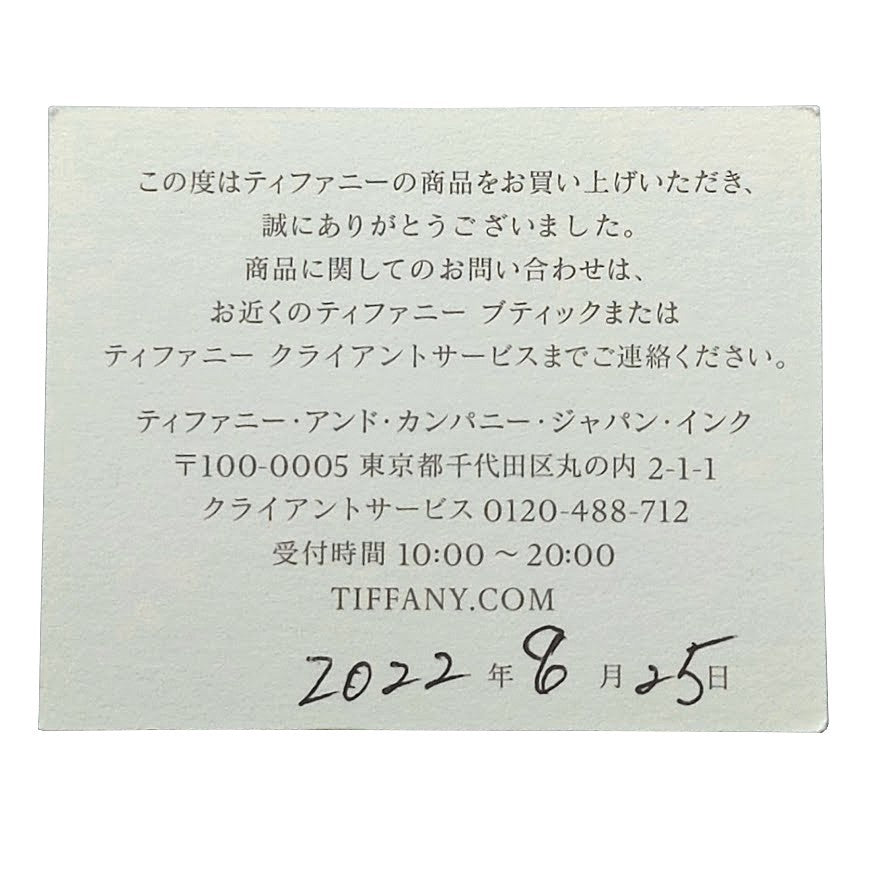 この度はティファニーの商品をお買い上げいただき、
誠にありがとうございました。
商品に関してのお問い合わせは、
お近くのティファニー ブティックまたは
ティファニー クライアントサービスまでご連絡ください。
ティファニー・アンド・カンパニー・ジャパン・インク
〒100-0005 東京都千代田区丸の内 2-1-1
クライアントサービス 0120-488-712
受付時間 10:00 〜 20:00
TIFFANY.COM
2022 年 8 月 25 日